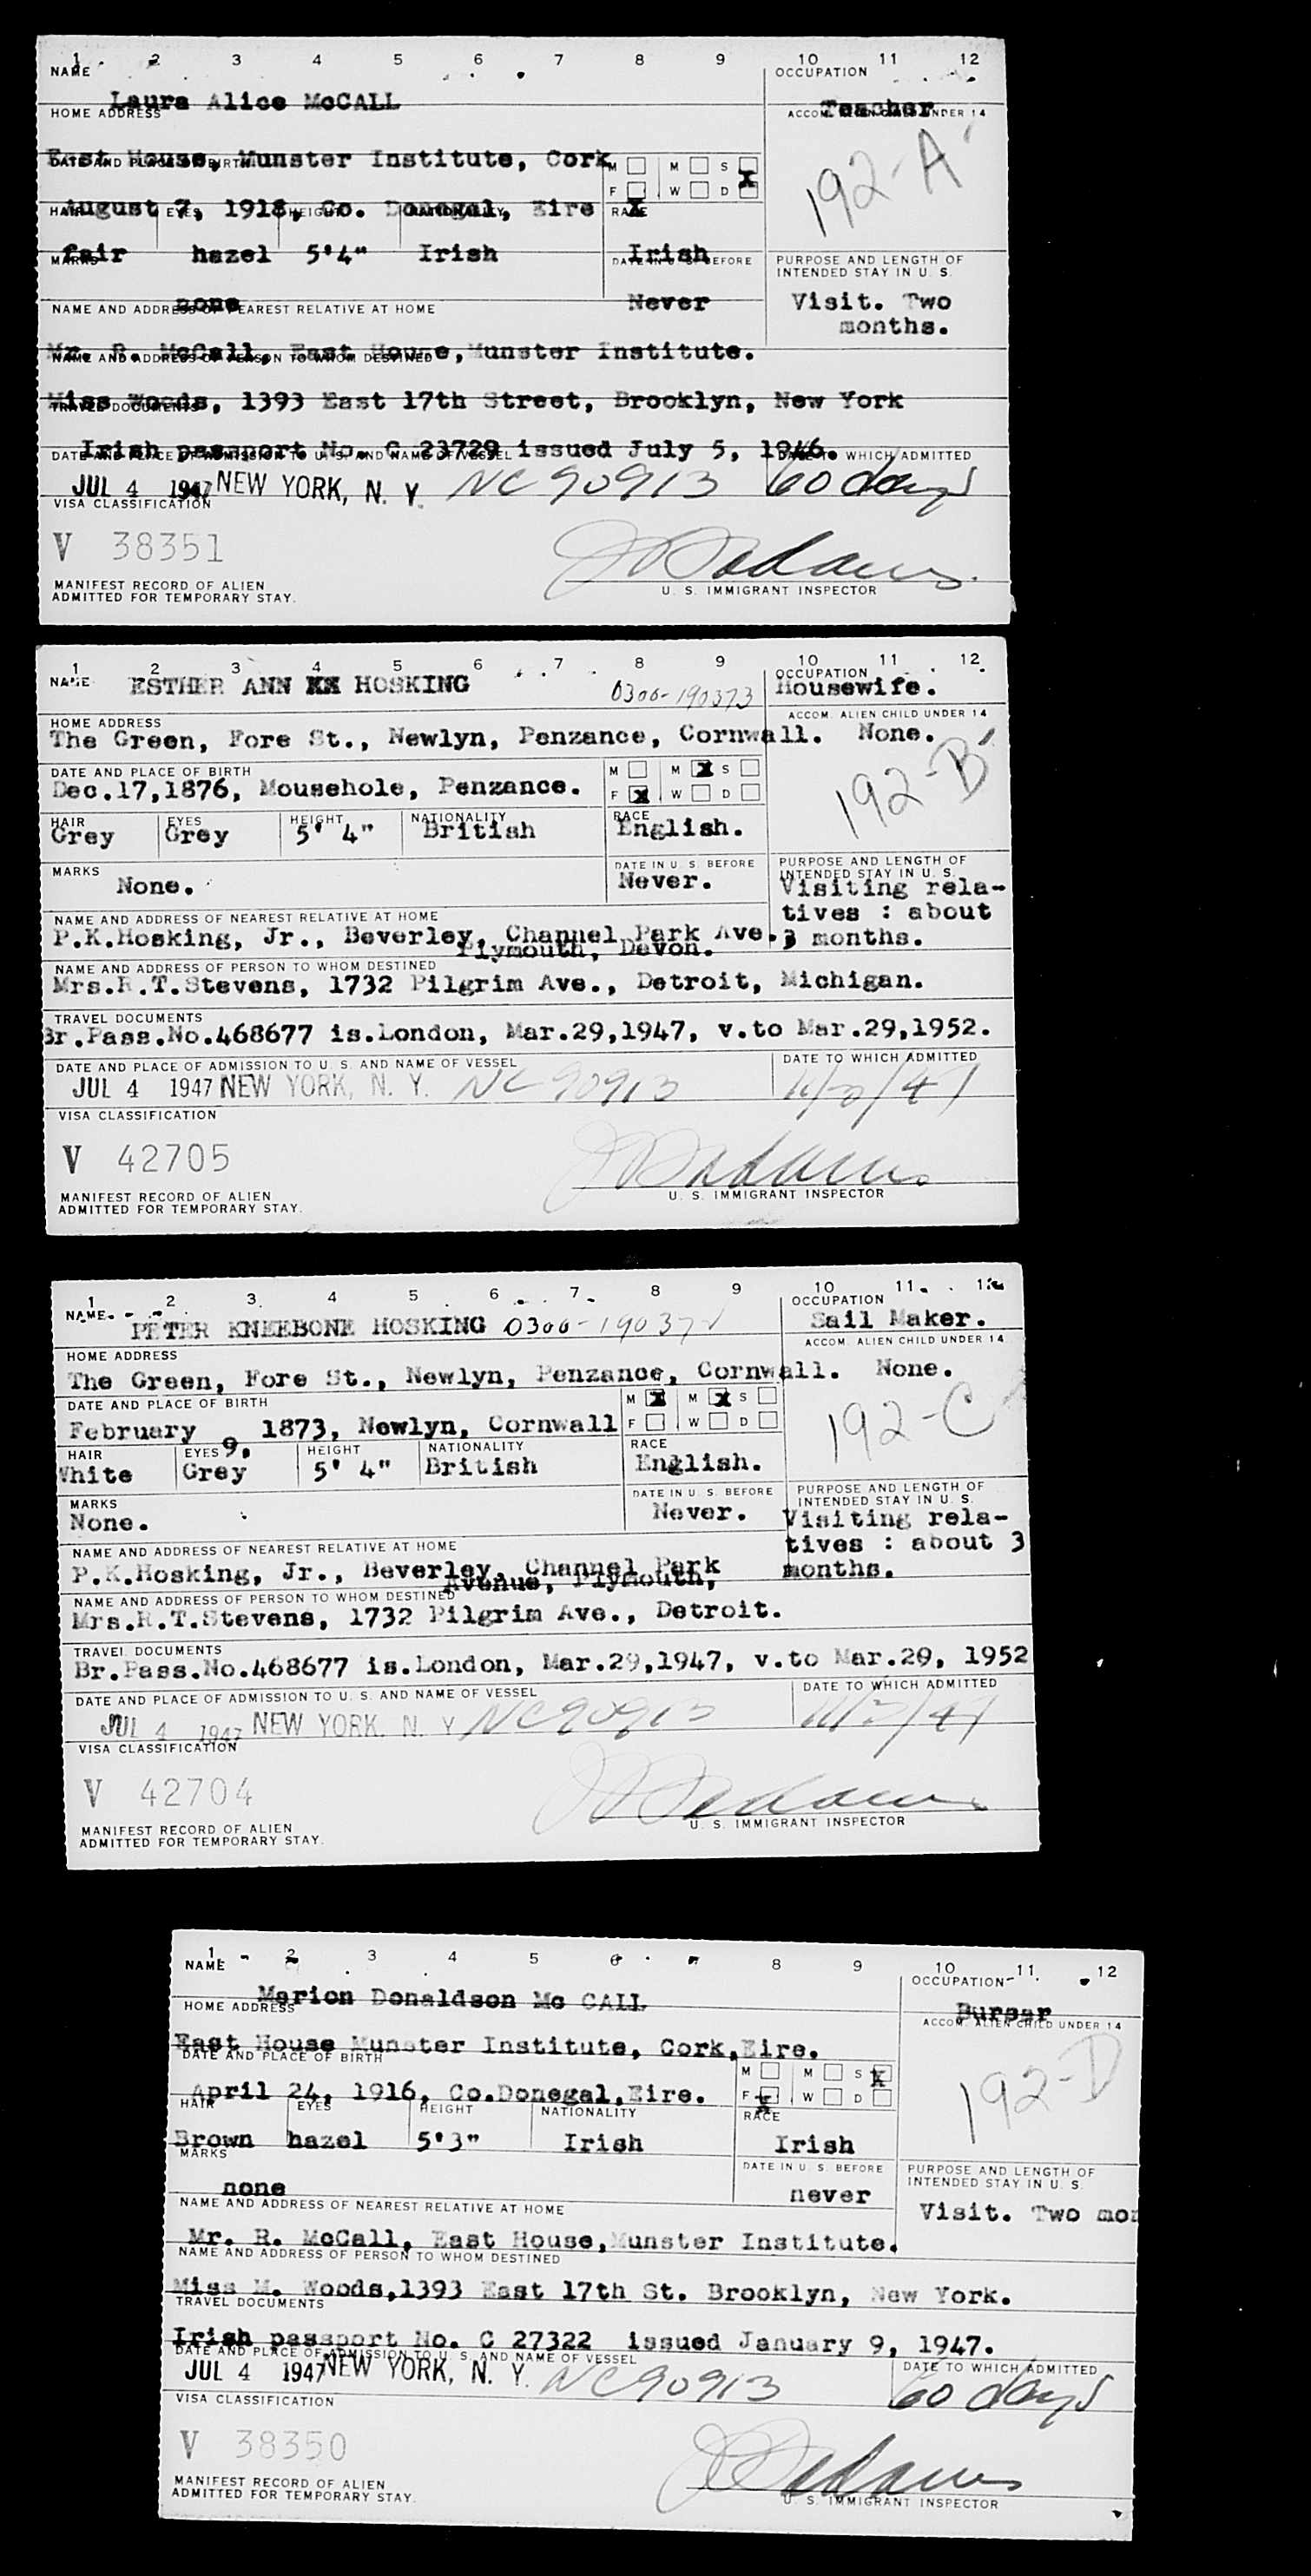 1 2 3 4 5 6 7 8 9 10 11 12
NAME OCCUPATION
Laura Alice McCALL Teacher
HOME ADDRESS ACCOM. ALIEN CHILD UNDER 14
East House, Munster Institute, Cork
DATE AND PLACE OF BIRTH M M S
F X W D X
192-A
August 7, 1918, Co. Donegal, Eire
HAIR EYES HEIGHT NATIONALITY RACE
fair hazel 5'4" Irish Irish
MARKS DATE IN U. S. BEFORE PURPOSE AND LENGTH OF
INTENDED STAY IN U. S.
none Never Visit. Two
months.
NAME AND ADDRESS OF NEAREST RELATIVE AT HOME
Mr. R. McCall, East House, Munster Institute.
NAME AND ADDRESS OF PERSON TO WHOM DESTINED
Miss Woods, 1393 East 17th Street, Brooklyn, New York
TRAVEL DOCUMENTS
Irish passport No. C 23729 issued July 5, 1946.
DATE AND PLACE OF ADMISSION TO U. S. AND NAME OF VESSEL DATE TO WHICH ADMITTED
JUL 4 1947 NEW YORK, N. Y. NC 90913 60 days
VISA CLASSIFICATION
V 38351
J Adams
MANIFEST RECORD OF ALIEN
ADMITTED FOR TEMPORARY STAY.
U. S. IMMIGRANT INSPECTOR
1 2 3 4 5 6 7 8 9 10 11 12
NAME ESTHER ANN XX HOSKING 0300-190373 OCCUPATION
Housewife.
HOME ADDRESS ACCOM. ALIEN CHILD UNDER 14
The Green, Fore St., Newlyn, Penzance, Cornwall. None.
DATE AND PLACE OF BIRTH M M X S
Dec.17,1876, Mousehole, Penzance. F X W D
192-B
HAIR EYES HEIGHT NATIONALITY RACE
Grey Grey 5' 4" British English.
MARKS DATE IN U. S. BEFORE PURPOSE AND LENGTH OF
INTENDED STAY IN U. S.
None. Never. Visiting rela-
tives : about
3 months.
NAME AND ADDRESS OF NEAREST RELATIVE AT HOME
P.K.Hosking, Jr., Beverley, Channel Park Ave.
Plymouth, Devon.
NAME AND ADDRESS OF PERSON TO WHOM DESTINED
Mrs.R.T.Stevens, 1732 Pilgrim Ave., Detroit, Michigan.
TRAVEL DOCUMENTS
Br.Pass.No.468677 is.London, Mar.29,1947, v.to Mar.29,1952.
DATE AND PLACE OF ADMISSION TO U. S. AND NAME OF VESSEL DATE TO WHICH ADMITTED
JUL 4 1947 NEW YORK, N. Y. NC 90913
VISA CLASSIFICATION
V 42705
J Adams
MANIFEST RECORD OF ALIEN
ADMITTED FOR TEMPORARY STAY.
U. S. IMMIGRANT INSPECTOR
1 2 3 4 5 6 7 8 9 10 11 12
NAME OCCUPATION
PETER KNEEBONE HOSKING 0300-190372 Sail Maker.
HOME ADDRESS ACCOM. ALIEN CHILD UNDER 14
The Green, Fore St., Newlyn, Penzance, Cornwall. None.
DATE AND PLACE OF BIRTH M X M X S
February 9, 1873, Newlyn, Cornwall F W D
192-C
HAIR EYES HEIGHT NATIONALITY RACE
White Grey 5' 4" British English.
MARKS DATE IN U. S. BEFORE PURPOSE AND LENGTH OF
INTENDED STAY IN U. S.
None. Never. Visiting rela-
tives : about 3
months.
NAME AND ADDRESS OF NEAREST RELATIVE AT HOME
P.K.Hosking, Jr., Beverley, Channel Park
Avenue, Plymouth,
NAME AND ADDRESS OF PERSON TO WHOM DESTINED
Mrs.R.T.Stevens, 1732 Pilgrim Ave., Detroit.
TRAVEL DOCUMENTS
Br.Pass.No.468677 is.London, Mar.29,1947, v.to Mar.29, 1952
DATE AND PLACE OF ADMISSION TO U. S. AND NAME OF VESSEL DATE TO WHICH ADMITTED
JUL 4 1947 NEW YORK, N. Y NC90913
VISA CLASSIFICATION
V 42704
J Adams
MANIFEST RECORD OF ALIEN
ADMITTED FOR TEMPORARY STAY.
U. S. IMMIGRANT INSPECTOR
1 2 3 4 5 6 7 8 9 10 11 12
NAME OCCUPATION
Marion Donaldson Mc CALL Bursar
HOME ADDRESS ACCOM. ALIEN CHILD UNDER 14
East House Munster Institute, Cork,Eire.
DATE AND PLACE OF BIRTH M M S X
April 24, 1916, Co.Donegal,Eire. F X W D
192-D
HAIR EYES HEIGHT NATIONALITY RACE
Brown hazel 5'3" Irish Irish
MARKS DATE IN U. S. BEFORE PURPOSE AND LENGTH OF
INTENDED STAY IN U. S.
none never Visit. Two mon
NAME AND ADDRESS OF NEAREST RELATIVE AT HOME
Mr. R. McCall, East House,Munster Institute.
NAME AND ADDRESS OF PERSON TO WHOM DESTINED
Miss M. Woods,1393 East 17th St. Brooklyn, New York.
TRAVEL DOCUMENTS
Irish passport No. C 27322 issued January 9, 1947.
DATE AND PLACE OF ADMISSION TO U. S. AND NAME OF VESSEL DATE TO WHICH ADMITTED
JUL 4 1947 NEW YORK, N. Y. NC90913 60 days
VISA CLASSIFICATION
V 38350
J Adams
MANIFEST RECORD OF ALIEN
ADMITTED FOR TEMPORARY STAY.
U. S. IMMIGRANT INSPECTOR